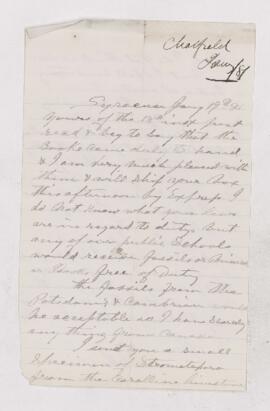 Chatfield
Jany /81
Syracuse Jany 19th 81
Yours of the 13th inst just
recd & beg to say that the
Books came duly to hand
& I am very much pleased with
them & will ship you Box
this afternoon by Express I
do not know what your laws
are in regard to duty. But
any of our public Schools
would receive fossils or
or Books free of Duty
the fossils from the
Potsdam & Cambrian would
be acceptable as I have scarcely
any thing from Canada
I send you a small
specimen of Stromatopora
from the Coralline limestone